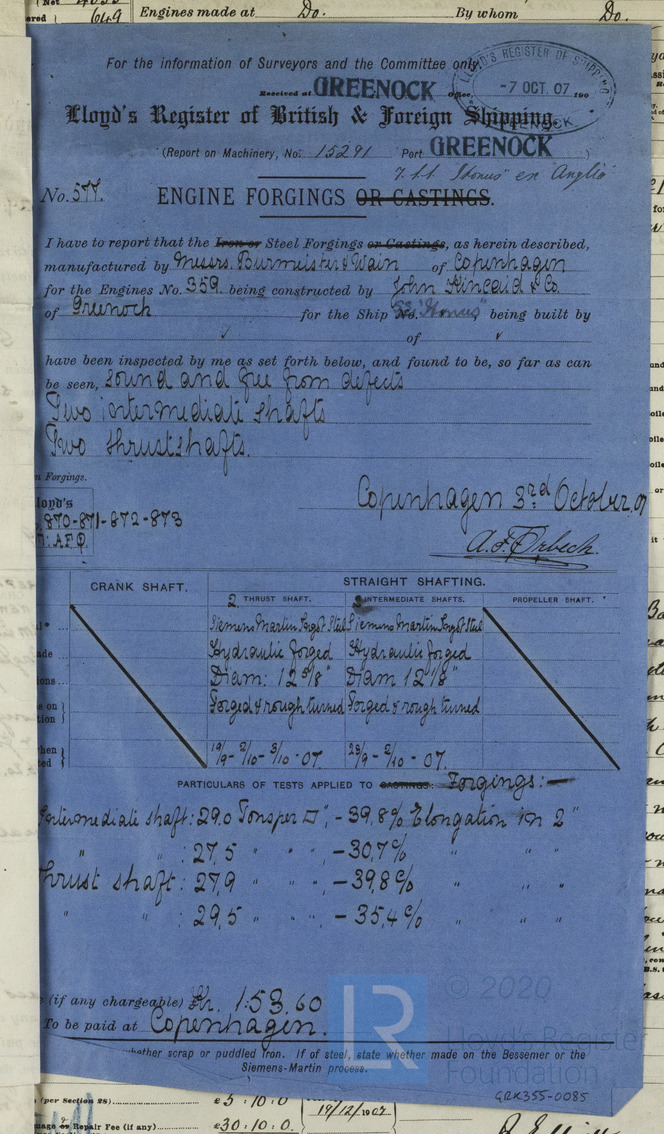 649 Engines made at Do. By whom Do.
For the information of Surveyors and the Committee only.
Received at GREENOCK Office, 190
LLOYD'S REGISTER OF SHIPPING
-7 OCT. 07
GREENOCK
Lloyd's Register of British & Foreign Shipping.
(Report on Machinery, No. 15291 Port GREENOCK )
No. 577. ENGINE FORGINGS OR CASTINGS.
I have to report that the Iron or Steel Forgings or Castings, as herein described,
manufactured by Messrs. Burmeister & Wain of Copenhagen
for the Engines No. 359 being constructed by John Kincaid & Co.
of Greenock for the Ship being built by
of
have been inspected by me as set forth below, and found to be, so far as can
be seen, sound and free from defects
Two intermediate shafts
Two thrustshafts.
n Forgings.
loyd's
870-871-872-873
A.F.O.
Copenhagen 3rd October, 07
A.F. Orbech.
CRANK SHAFT. STRAIGHT SHAFTING.
2. THRUST SHAFT. INTERMEDIATE SHAFTS. PROPELLER SHAFT.
Siemens Martin Forgst Steel Siemens Martin Forgst Steel
Hydraulic forged Hydraulic forged
Diam: 12 5/8" Diam 12 1/8"
Forged & rough turned Forged & rough turned
19/9 - 2/10 - 3/10 - 07. 28/9 - 2/10 - 07.
PARTICULARS OF TESTS APPLIED TO CASTINGS. Forgings:—
Intermediate shaft: 29.0 Tons per □", - 39,8% Elongation in 2"
" : 27,5 " " - 30,7% " " "
Thrust shaft: 27,9 " " - 39,8% " " "
" " : 29,5 " " - 35,4% " " "
(if any chargeable) Kr. 153.60
To be paid at Copenhagen.
whether scrap or puddled Iron. If of steel, state whether made on the Bessemer or the
Siemens-Martin process.
LR © 2020
Lloyd's Register
Foundation
GRK355-0085
(per Section 28) £5:10:0
Repair Fee (if any) £30:10:0. 19/12/1907